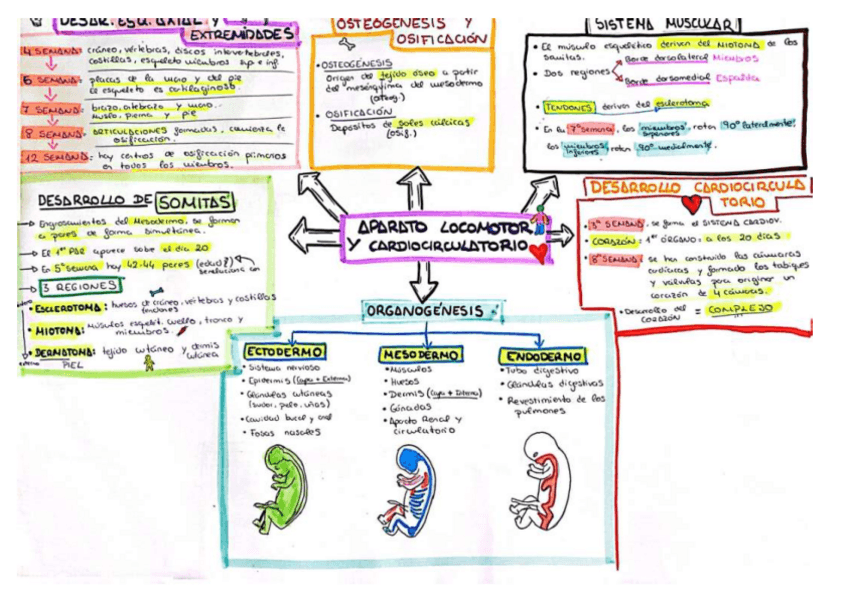 DESAR. ESQ. AXIAL Y
EXTREMIDADES
4 SEMANA: cráneo, vértebras, discos intervertebrales,
costillas, esqueleto miembros sup e inf.
6 SEMANA: placas de la mano y del pie
El esqueleto es cartilaginoso.
7 SEMANA: brazo, antebrazo y mano.
Muslo, pierna y pie
8 SEMANA: ARTICULACIONES formadas, comienza la
osificación.
12 SEMANA: hay centros de osificación primarios
en todos los miembros.
OSTEOGÉNESIS Y
OSIFICACIÓN
• OSTEOGÉNESIS
Origen del tejido óseo a partir
del mesénquima del mesodermo
• OSIFICACIÓN
Depósitos de sales cálcicas
(osif.)
SISTEMA MUSCULAR
• El músculo esquelético deriva del MIOTOMA de las
somitas.
• Dos regiones
Borde dorsolateral Miembros
Borde dorsomedial Espalda
• TENDONES derivan del esclerotoma
• En la 7ª semana, los miembros superiores rotan 90º lateralmente.
los miembros inferiores, rotan 90º medialmente.
DESARROLLO DE SOMITAS
Engrosamientos del Mesodermo, se forman
a pares de forma simultánea.
El 1er PAR aparece sobre el día 20
En 5ª semana hay 42-44 pares (edad?)
3 REGIONES
• ESCLEROTOMA: huesos de cráneo, vértebras y costillas
tendones
• MIOTOMA: Músculos esquelét. cuello, tronco y
miembros.
• DERMATOMA: tejido cutáneo y dermis
cutánea
PIEL
APARATO LOCOMOTOR
Y CARDIOCIRCULATORIO
DESARROLLO CARDIOCIRCULA
TORIO
• 3ª SEMANA: se forma el SISTEMA CARDIOV.
• CORAZÓN: 1er ÓRGANO, a los 20 días
• 8ª SEMANA: se han construido las cámaras
cardiacas y formado los tabiques
y válvulas para originar un
corazón de 4 cámaras.
• Desarrollo del CORAZÓN = COMPLEJO
ORGANOGÉNESIS
ECTODERMO
• Sistema nervioso
• Epidermis (Capa + Externa)
• Glándulas cutáneas
(sudor, pelo, uñas)
• Cavidad bucal y anal
• Fosas nasales
MESODERMO
• Músculos
• Huesos
• Dermis (Capa + Interna)
• Gónadas
• Aparato Renal y
circulatorio
ENDODERMO
• Tubo digestivo
• Glándulas digestivas
• Revestimiento de los
pulmones